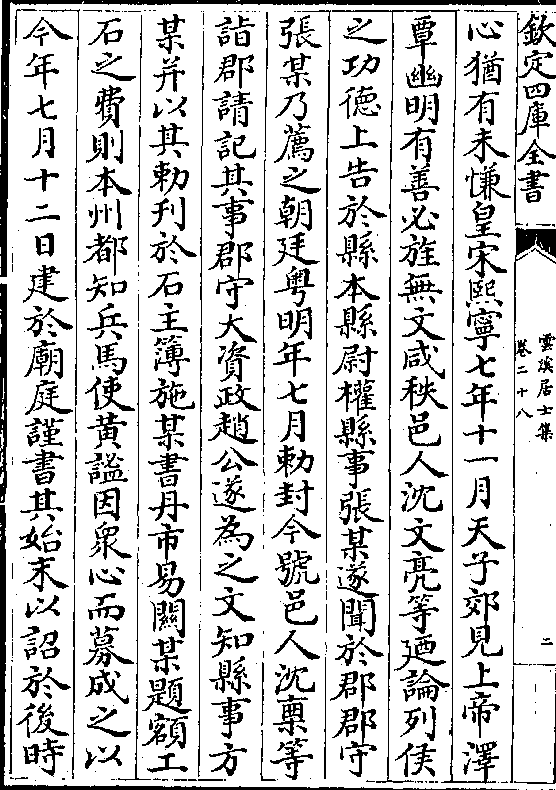 欽定四庫全書
雲溪居士集
卷二十八
二
心猶有未慊皇宋熙寧七年十一月天子郊見上帝澤
覃幽明有善必旌無文咸秩邑人沈文亮等廼論列侯
之功德上告於縣本縣尉權縣事張某遂聞於郡郡守
張某乃薦之朝廷粤明年七月勅封今號邑人沈㮚等
詣郡請記其事郡守大資政趙公遂為之文知縣事方
某并以其勅刋於石主簿施某書丹市易闗某題額工
石之費則本州都知兵馬使黄謚因衆心而募成之以
今年七月十二日建於廟庭謹書其始末以詔於後時